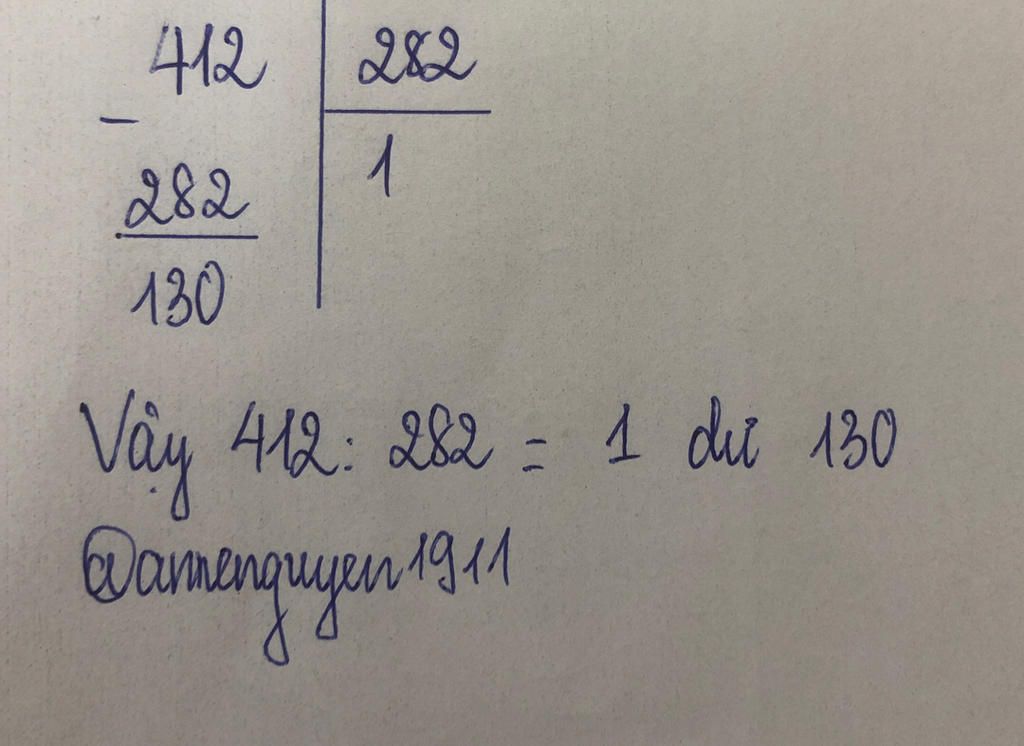 412 282
-
282 1
130
Vậy 412: 282 = 1 dư 130
@annenguyen1911